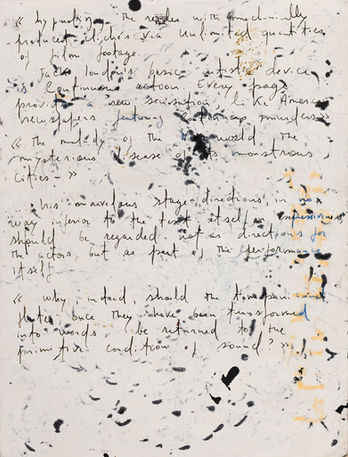 « hypnotizing the reader with mechanically
produced clichés via unlimited quantities
of film footage.
Jack London's basic artistic device
is continuous action. Every page
provides a new sensation, like American
newspapers featuring murders»
« The malady of the world, the
mysterious disease of its monstrous
cities »
his marvelous stage-directions, in no
way inferior to the text itself in expressiveness
should be regarded not as directions for
the actors but as part of the performance
itself
« Why, indeed, should the
once they have been transformed
into words, be returned to the
primitive condition of sound? »